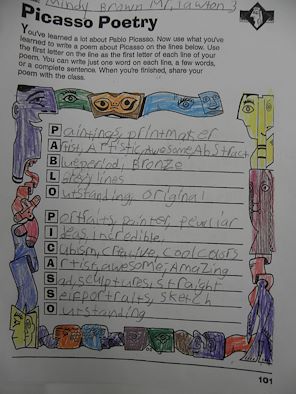 Mindy Brown
Picasso Poetry
You've learned a lot about Pablo Picasso. Now use what you've
learned to write a poem about Picasso on the lines below. Use
the first letter on the line as the first letter of each line of your
poem. You can write just one word on each line, a few words,
or a complete sentence. When you're finished, share your
poem with the class.
Paintings, printmaker
Artist, Artistic, Awesome, Abstract
Blue period, Bronze
Lines
Outstanding, original
Portraits, painter, peculiar
Ideas, incredible,
Cubism, creative, cool colours
Artist, awesome, Amazing
Sad, sculptures, straight
Selfportraits, sketch
Outstanding
101